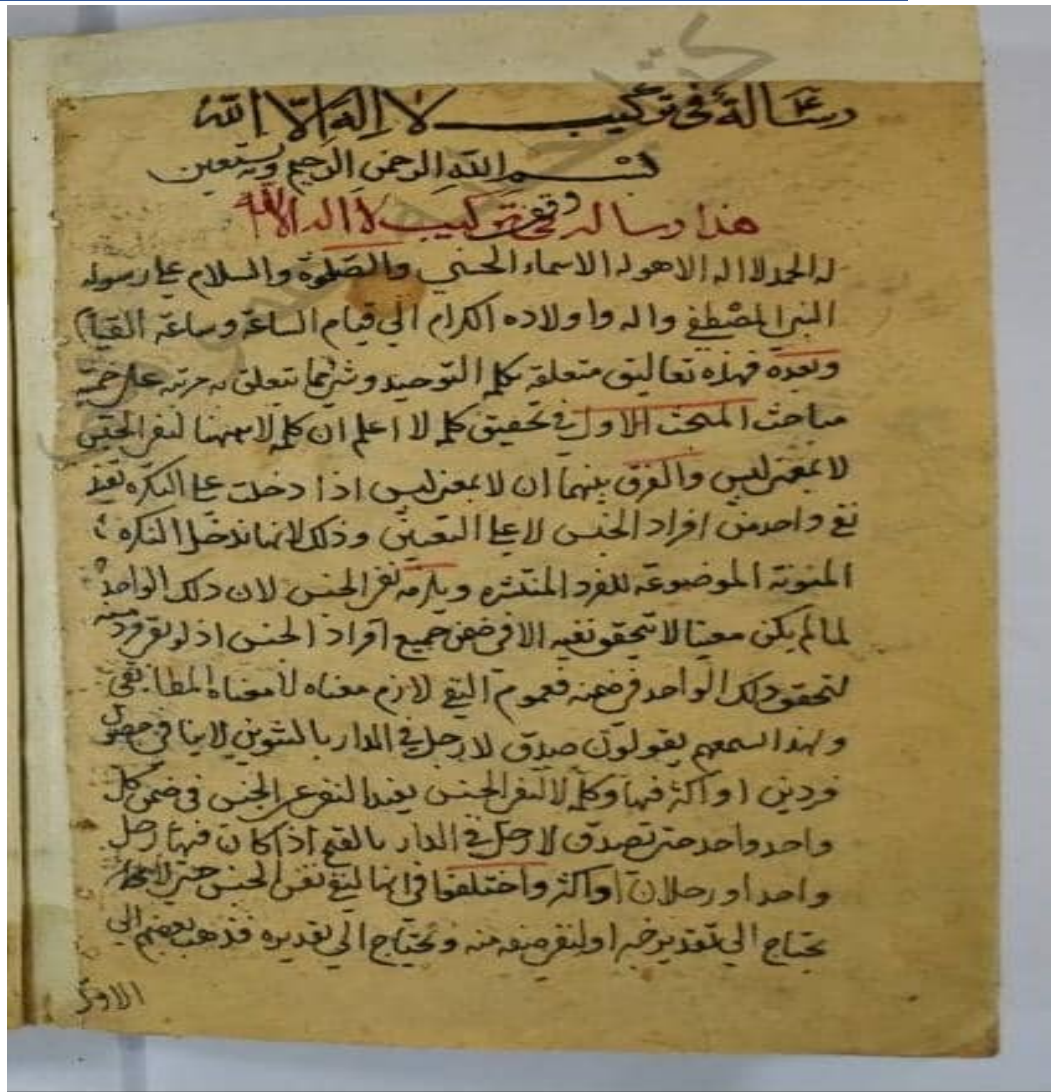 رسالة في تركيب لا إله إلا الله
بسم الله الرحمن الرحيم وبه نستعين
هذا رسالة في تركيب لا اله الا الله
وقف
له الحمد لا اله الا هو له الاسماء الحسنى والصلوة والسلام على رسوله
النبى المصطفى واله واولاده الكرام الى قيام الساعة وساعة القيام
وبعده فهذه تعاليق متعلقة بكلمة التوحيد وشئ مما يتعلق به مرتبة على خمسة
مباحث المبحث الاول في تحقيق كلمة لا اعلم ان كلمة لا ههنا لنفى الجنس
لا بمعنى ليس والفرق بينهما ان لا بمعنى ليس اذا دخلت على النكرة تفيد
نفى واحد من افراد الجنس لا على التعيين وذلك لانها تدخل النكرة
المنونة الموضوعة للفرد المنتشره ويلزمه نفى الجنس لان ذلك الواحد
لما لم يكن معينا لا يتحقق نفيه الا فى ضمن جميع افراد الجنس اذ لو بقى فرد منه
لتحقق ذلك الواحد فى ضمنه فعموم النفى لازم معناه لا معناه المطابقى
ولهذا اسمعهم يقولون صدق لا رجل في الدار بالتنوين لا ينافى حصول
فردين او اكثر فيها وكلمة لا لنفى الجنس يفيد النفى عن الجنس فى ضمن كل
واحد واحد حتى تصدق لا رجل في الدار بالفتح اذا كان فيها رجل
واحد او رجلان او اكثر واختلفوا فى انها لنفى نفس الجنس حتى لا
يحتاج الى تقدير خبر او لنفى صفة منه ويحتاج الى تقديره فذهب بعضهم الى
الاول